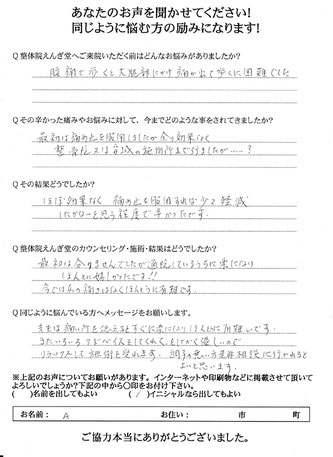 あなたのお声を聞かせてください!
同じように悩む方の励みになります!
Q 整体院えんぎ堂へご来院いただく前はどんなお悩みがありましたか?
腰痛で歩くと大腿部にかけ痛が出て歩くに困難でした
Q その辛かった痛みやお悩みに対して、今までどのような事をされてきましたか?
最初は痛め止を服用しましたが余り効果なく
整骨院又は宮城の施術所まで行きましたが……?
Q その結果どうでしたか?
ほぼ効果なく 痛め止を服用すれば少々軽減
したかな〜と思う程度で辛かったです。
Q 整体院えんぎ堂のカウンセリング・施術・結果はどうでしたか?
最初は合りませんでしたが通院しているうちに楽になり
ほんとに嬉しかったです!!
今では私の動きはなくほんとうに有難です。
Q 同じように悩んでいる方へメッセージをお願いします。
先生は痛い所を
すぐに楽になりほんとうに有難いです。
またいろいろアドバイスをしてくれ、とにかく優しいので
リラックスして施術を受れます。調子の悪い方是非相談に行かれると
よいと思います。
※上記のお声についてお願いがあります。インターネットや印刷物などに掲載させて頂いて
よろしいでしょうか?下記の中から〇印をお付け下さい。
( )名前を出してもよい ( / )イニシャルなら出してもよい
お名前: A お住い: 市 町
ご協力本当にありがとうございました。